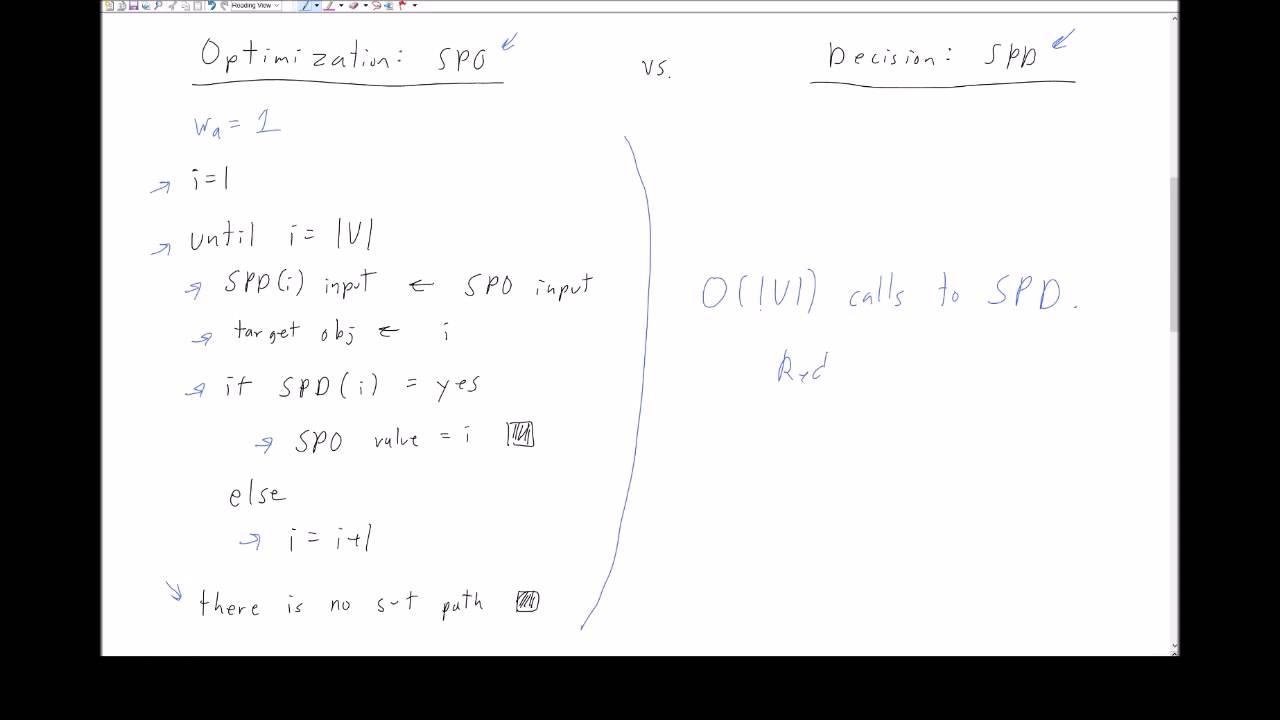 Reading View
Optimization: SPO
vs.
Decision: SPD
wₐ = 1
i=1
until i = |V|
SPD(i) input ← SPO input
target obj ← i
if SPD(i) = yes
SPO value = i
else
i = i+1
there is no s-t path
O(|V|) calls to SPD.